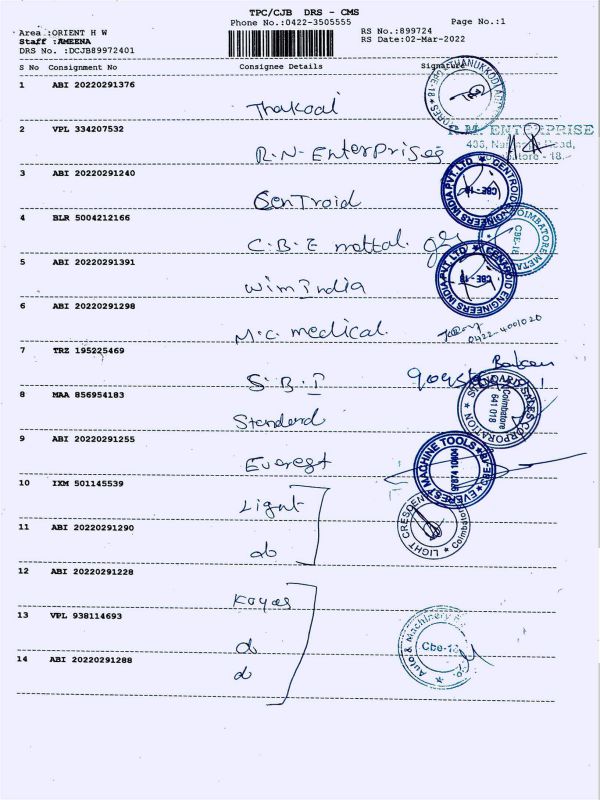 TPC/CJB DRS - CMS
Phone No.:0422-3505555
Page No.:1
Area :ORIENT H W
Staff :AMEENA
DRS No. :DCJB89972401
RS No.:899724
RS Date:02-Mar-2022
S No Consignment No Consignee Details Signature
1 ABI 20220291376
Thakodi
2 VPL 334207532
R.N. Enterprises
3 ABI 20220291240
CenTroid
4 BLR 5004212166
C.B.E mettal
5 ABI 20220291391
WimIndia
6 ABI 20220291298
M.C. medical
0422-4001020
7 TRZ 195225469
S.B.I
8 MAA 856954183
Standerd
9 ABI 20220291255
Everest
10 IXM 501145539
Light
11 ABI 20220291290
do
12 ABI 20220291228
13 VPL 938114693
d
14 ABI 20220291288
d
CBE-18
ENTERPRISE
Road,
- 18.
CENTROID ENGINEERS INDIA PVT. LTD
CBE - 18
COIMBATORE METAL
CBE-18
CENTROID ENGINEERS INDIA PVT. LTD
CBE - 18
STANDARD SALES CORPORATION
Coimbatore
641 018
EVEREST MACHINE TOOLS
97874 10404
LIGHT CRESCENT
Coimbatore
Auto & Machinery
Cbe-18